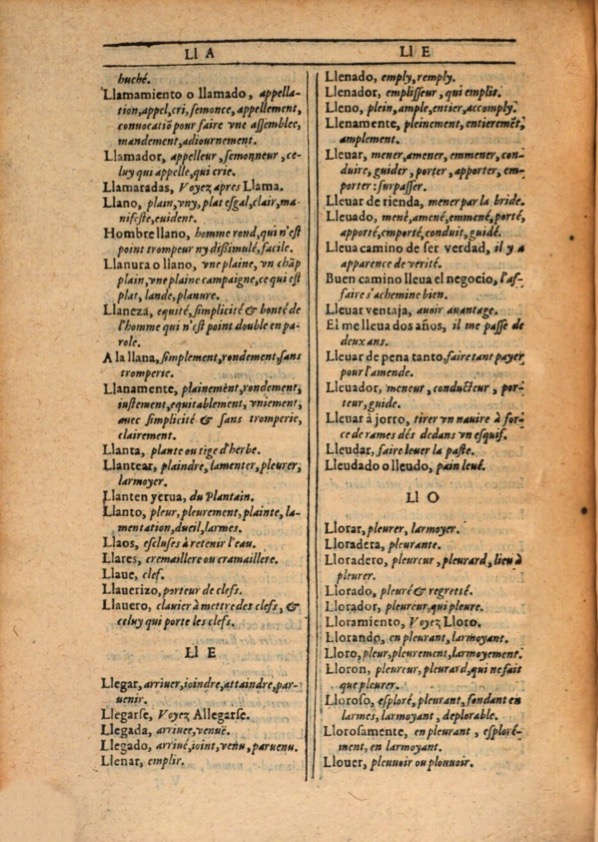 Ll A
buché.
Llamamiento o llamado, appella-
tion, appel, cri, semonce, appellement,
conuocatiō pour faire vne assemblee,
mandement, adiournement.
Llamador, appelleur, semonneur, ce-
luy qui appelle, qui crie.
Llamaradas, Voyez apres Llama.
Llano, plain, vny, plat esgal, clair, ma-
nifeste, euident.
Hombre llano, homme rond, qui n'est
point trompeur ny dissimulé, facile.
Llanura o llano, vne plaine, vn chāp
plain, vne plaine campaigne, ce qui est
plat, lande, planure.
Llaneza, equité, simplicité & bonté de
l'homme qui n'est point double en pa-
role.
A la llana, simplement, rondement, sans
tromperie.
Llanamente, plainemēt, rondement,
iustement, equitablement, vniement,
auec simplicité & sans tromperie,
clairement.
Llanta, plante ou tige d'herbe.
Llantear, plaindre, lamenter, pleurer,
larmoyer.
Llanten yerua, du Plantain.
Llanto, pleur, pleurement, plainte, la-
mentation, dueil, larmes.
Llaos, escluses à retenir l'eau.
Llares, cremaillere ou cramaillere.
Llaue, clef.
Llauerizo, porteur de clefs.
Llauero, clauier à mettre des clefs, &
celuy qui porte les clefs.
Ll E
Llegar, arriuer, ioindre, attaindre, par-
uenir.
Llegarse, Voyez Allegarse.
Llegada, arriuee, venuë.
Llegado, arriué, ioint, venu, paruenu.
Llenar, emplir.
Ll E
Llenado, emply, remply.
Llenador, emplisseur, qui emplit.
Lleno, plein, ample, entier, accomply.
Llenamente, pleinement, entieremēt,
amplement.
Lleuar, mener, amener, emmener, con-
duire, guider, porter, apporter, em-
porter: surpasser.
Lleuar de rienda, mener par la bride.
Lleuado, mené, amené, emmené, porté,
apporté, emporté, conduit, guidé.
Lleua camino de ser verdad, il y a
apparence de verité.
Buen camino lleua el negocio, l'af-
faire s'achemine bien.
Lleuar ventaja, auoir auantage.
El me lleua dos años, il me passe de
deux ans.
Lleuar de pena tanto, faire tant payer
pour l'amende.
Lleuador, meneur, conducteur, por-
teur, guide.
Lleuar à jorro, tirer vn nauire à for-
ce de rames dés dedans vn esquif.
Lleudar, faire leuer la paste.
Lleudado o lleudo, pain leué.
Ll O
Llorar, pleurer, larmoyer.
Lloradera, pleurante.
Lloradero, pleureur, pleurard, lieu à
pleurer.
Llorado, pleuré & regretté.
Llorador, pleureur, qui pleure.
Lloramiento, Voyez Lloro.
Llorando, en pleurant, larmoyant.
Lloro, pleur, pleurement, larmoyement.
Lloron, pleureur, pleurard, qui ne fait
que pleurer.
Lloroso, esploré, pleurant, fondant en
larmes, larmoyant, deplorable.
Llorosamente, en pleurant, esploré-
ment, en larmoyant.
Llouer, pleuuoir ou plouuoir.